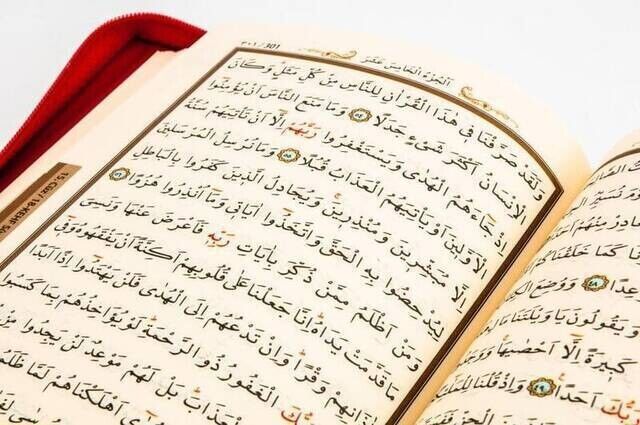 ٣٠١/301 اَلْجُزْءُ الْخَامِسُ عَشَرَ
وَلَقَدْ صَرَّفْنَا فِي هٰذَا الْقُرْاٰنِ لِلنَّاسِ مِنْ كُلِّ مَثَلٍ وَكَانَ
الْاِنْسَانُ اَكْثَرَ شَيْءٍ جَدَلًا ٥٤ وَمَا مَنَعَ النَّاسَ اَنْ يُؤْمِنُوا
اِذْ جَاءَهُمُ الْهُدٰى وَيَسْتَغْفِرُوا رَبَّهُمْ اِلَّا اَنْ تَأْتِيَهُمْ سُنَّةُ
الْاَوَّلِينَ اَوْ يَأْتِيَهُمُ الْعَذَابُ قُبُلًا ٥٥ وَمَا نُرْسِلُ الْمُرْسَلِينَ
اِلَّا مُبَشِّرِينَ وَمُنْذِرِينَ وَيُجَادِلُ الَّذِينَ كَفَرُوا بِالْبَاطِلِ
لِيُدْحِضُوا بِهِ الْحَقَّ وَاتَّخَذُوا اٰيَاتِي وَمَا اُنْذِرُوا هُزُوًا ٥٦
وَمَنْ اَظْلَمُ مِمَّنْ ذُكِّرَ بِاٰيَاتِ رَبِّهِ فَاَعْرَضَ عَنْهَا وَنَسِيَ
مَا قَدَّمَتْ يَدَاهُ اِنَّا جَعَلْنَا عَلٰى قُلُوبِهِمْ اَكِنَّةً اَنْ يَفْقَهُوهُ وَفِي
اٰذَانِهِمْ وَقْرًا وَاِنْ تَدْعُهُمْ اِلَى الْهُدٰى فَلَنْ يَهْتَدُوا اِذًا اَبَدًا
الْغَفُورُ ذُو الرَّحْمَةِ لَوْ يُؤَاخِذُهُمْ بِمَا كَسَبُوا
الْعَذَابَ بَلْ لَهُمْ مَوْعِدٌ لَنْ يَجِدُوا مِنْ
اَهْلَكْنَاهُمْ لَمَّا ظَلَمُوا
15.CÜZ / 18-KEHF
كَمَا خَلَقْنَا
٤٨ وَوُضِعَ
يَقُولُونَ يَا وَيْلَتَنَا
كَبِيرَةً اِلَّا اَحْصٰيهَا
اَحَدًا ٤٩ وَاِذْ قُلْنَا